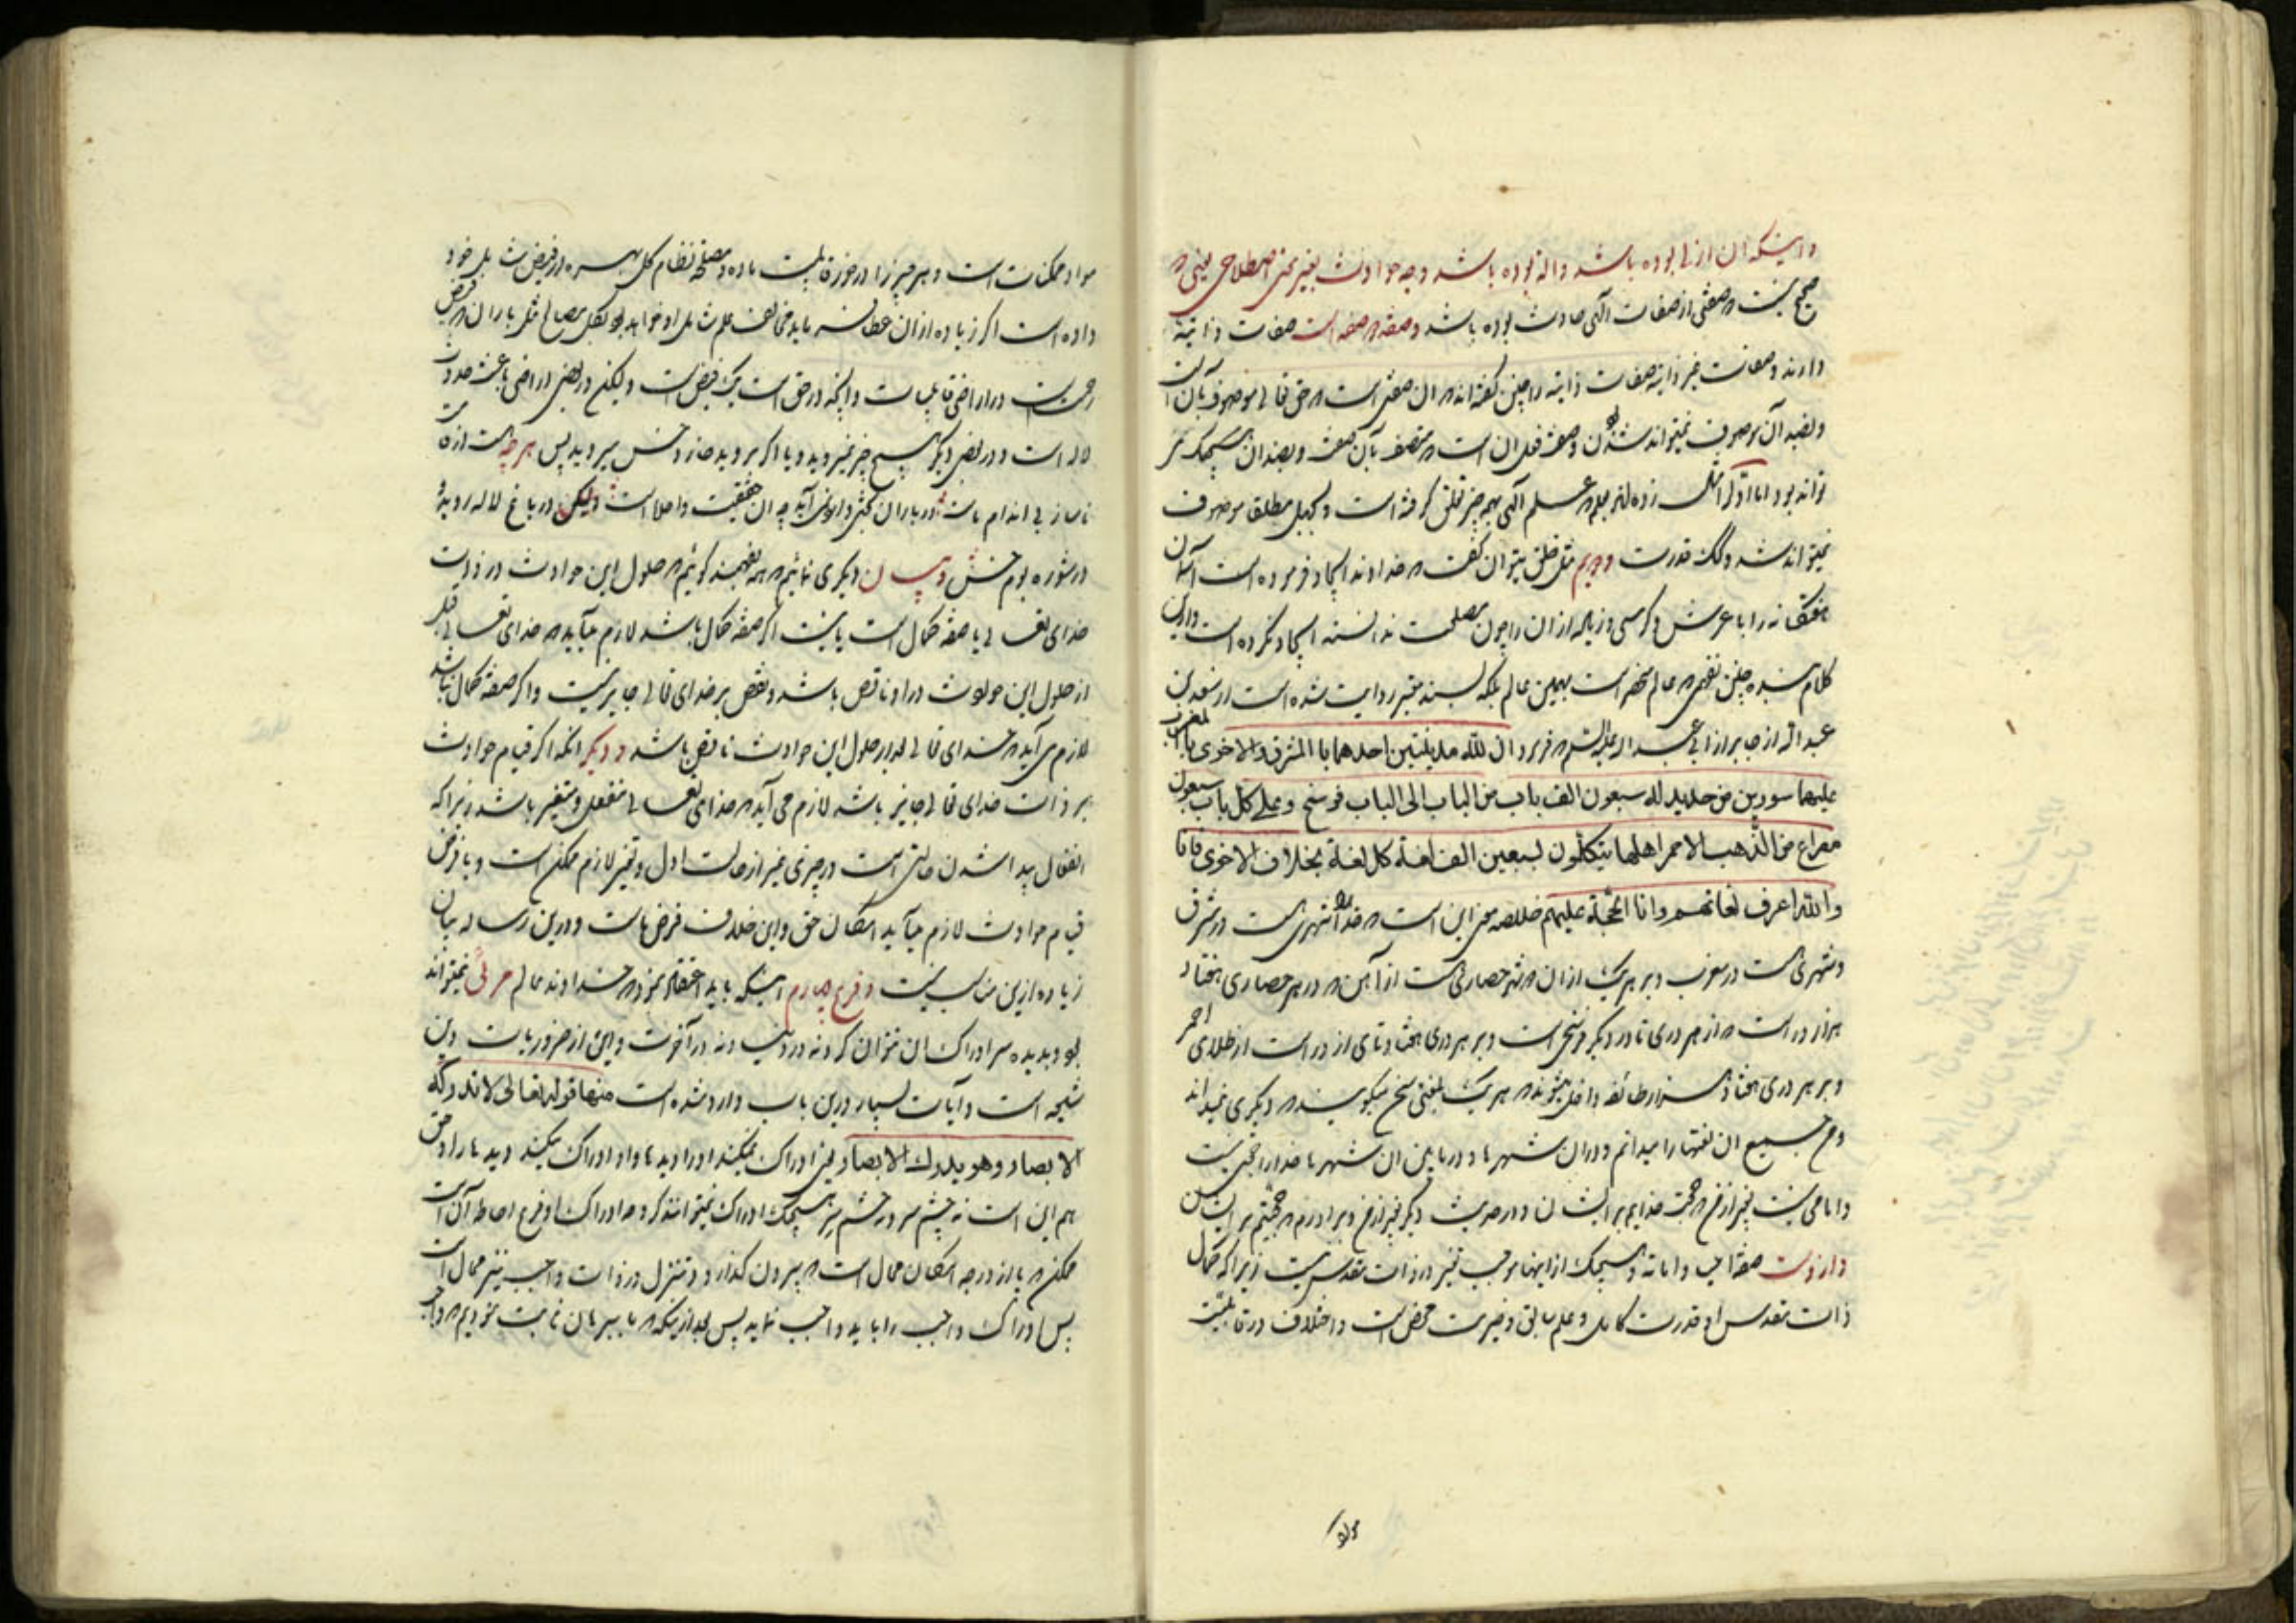 و اینکه ان ازلی بوده باشد و الا بوده باشد و چه حوادث بغیر معنی اصطلاحی یعنی
صحیح نیست که صفتی از صفات الهی حادث بوده باشد و صفه صفات ذاتیة
دارند و صفات غیر ذاتیه صفات ذاتیه را چنین گفته اند که ان صفتی است که حق تعالی موصوف بآن است
و بضد آن موصوف نمیتواند شدن و صفت فعل ان است که متصف بآن صفت و بضد ان
تواند بود اما اول زده اند بعلم که علم الهی بهر چیز تعلق گرفته است و بجهل مطلقا موصوف
نمیتواند شد و کک قدرت دویم مثل خلق میتوان گفت که خداوند ایجاد فرموده است آسمان
هفتگانه را با عرش و کرسی و زیاده از ان را چون مصلحت ندانسته ایجاد نکرده است و از این
کلام شده چنین نفهمی که عالم منحصر است بهمین عالم بلکه بسند معتبر روایت شده است از سعد بن
عبد الله از جابر از ابی عبد الله علیه السلم که فرمود ان لله مدینتین احدهما بالمشرق والاخری بالمغرب
علیهما سورین من حدید له سبعون الف باب من الباب الی الباب فرسخ وعلی کل باب سبعون
مصراع من الذهب الاحمر اهلها یتکلمون بسبعین الف لغة کل لغة بخلاف الاخری فانا
والله اعرف لغاتهم وانا الحجة علیهم خلاصه معنی این است که خدا را شهری است در مشرق
و شهری است در مغرب و بر هر یک از ان دو شهر حصاری است از آهن که در هر حصاری هفتاد
هزار در است که از هر دری تا در دیگر فرسخی است و بر هر دری هفتاد تای از در است از طلای احمر
و بر هر دری هفتاد هزار طائفه داخل میشوند که هر یک بلغتی سخن میگویند که دیگری نمیداند
و من جمیع ان لغتها را میدانم و در ان شهرها و در ما بین ان شهرها خدا را حجتی نیست
و امامی نیست بغیر از من که حجت خدایم بر ایشان و در حدیث دیگر بغیر از من و برادرم که حجتیم بر ایشان
صفة احیا و اماته و هیچیک از اینها موجب تغییر در ذات مقدس نیست زیرا که کمال
ذات مقدس او قدرت کامل و علم سابق و خیریت محض است و اختلاف در قابلیت
مواد ممکنات است و بهر چیز را در خور قابلیت ماده و مصلحة نظام کل بهره از فیض شامل خود
داده است اگر زیاده از ان عطا نماید مخالف علم شامل او خواهد بود مثل باران که فیض
رحمت است در اراضی قابلیات و آنچه در حق است یک فیض است و لیکن در بعضی اراضی باعث حدوث
لاله است و در بعضی دیگر هیچ چیز نمیروید و یا اگر بروید خار و خس میروید پس هر چه هست از
ناساز بی اندام ماست در باران کثرتی و لونی آید چه ان حقیقت واحد است و لیکن در باغ لاله روید و
در شوره بوم خس و بیان دیگری نمائیم که همه بفهمند گوئیم که حلول این حوادث در ذات
خدای تعالی یا صفة کمال است یا نیست اگر صفة کمال باشد لازم میآید که خدای تعالی قبل
از حلول این حوادث در او ناقص باشد و نقص بر خدای تعالی جایز نیست و اگر صفة کمال نباشد
لازم می آید که خدای تعالی بعد از حلول این حوادث ناقص باشد و دیگر انکه اگر قیام حوادث
بر ذات خدای تعالی جایز باشد لازم می آید که خدای تعالی منفعل و متغیر باشد زیرا که
انفعال پیدا شدن حالتی است در چیزی غیر از حالت اول و تغیر لازم ممکن است و با فرض
قیام حوادث لازم میآید امکان حق و این خلاف فرض ماست و در این رساله بیان
زیاده از این مناسب نیست و فرع چهارم اینکه باید اعتقاد نمود که خداوند عالم مرئی نمیتواند
بود و بدیده سر ادراک ان نتوان کرد نه در دنیا و نه در آخرت و این از ضروریات دین
شیعه است و آیات بسیار در این باب وارد شده است منها قوله تعالی لا تدرکه
الابصار وهو یدرک الابصار یعنی ادراک نمیکند او را دیده ها و او ادراک میکند دیده ها را و حق
هم این است نه چشم سر و نه چشم سر هیچیک ادراک نمیتوانند کرد چه ادراک او فرع احاطه آن است
ممکن که پا از درجه امکان محال است که بیرون گذارد و تنزل در ذات واجب نیز محال است
پس ادراک واجب را باید واجب نماید پس بعد از اینکه ما ببرهان ثابت نمودیم که واجب